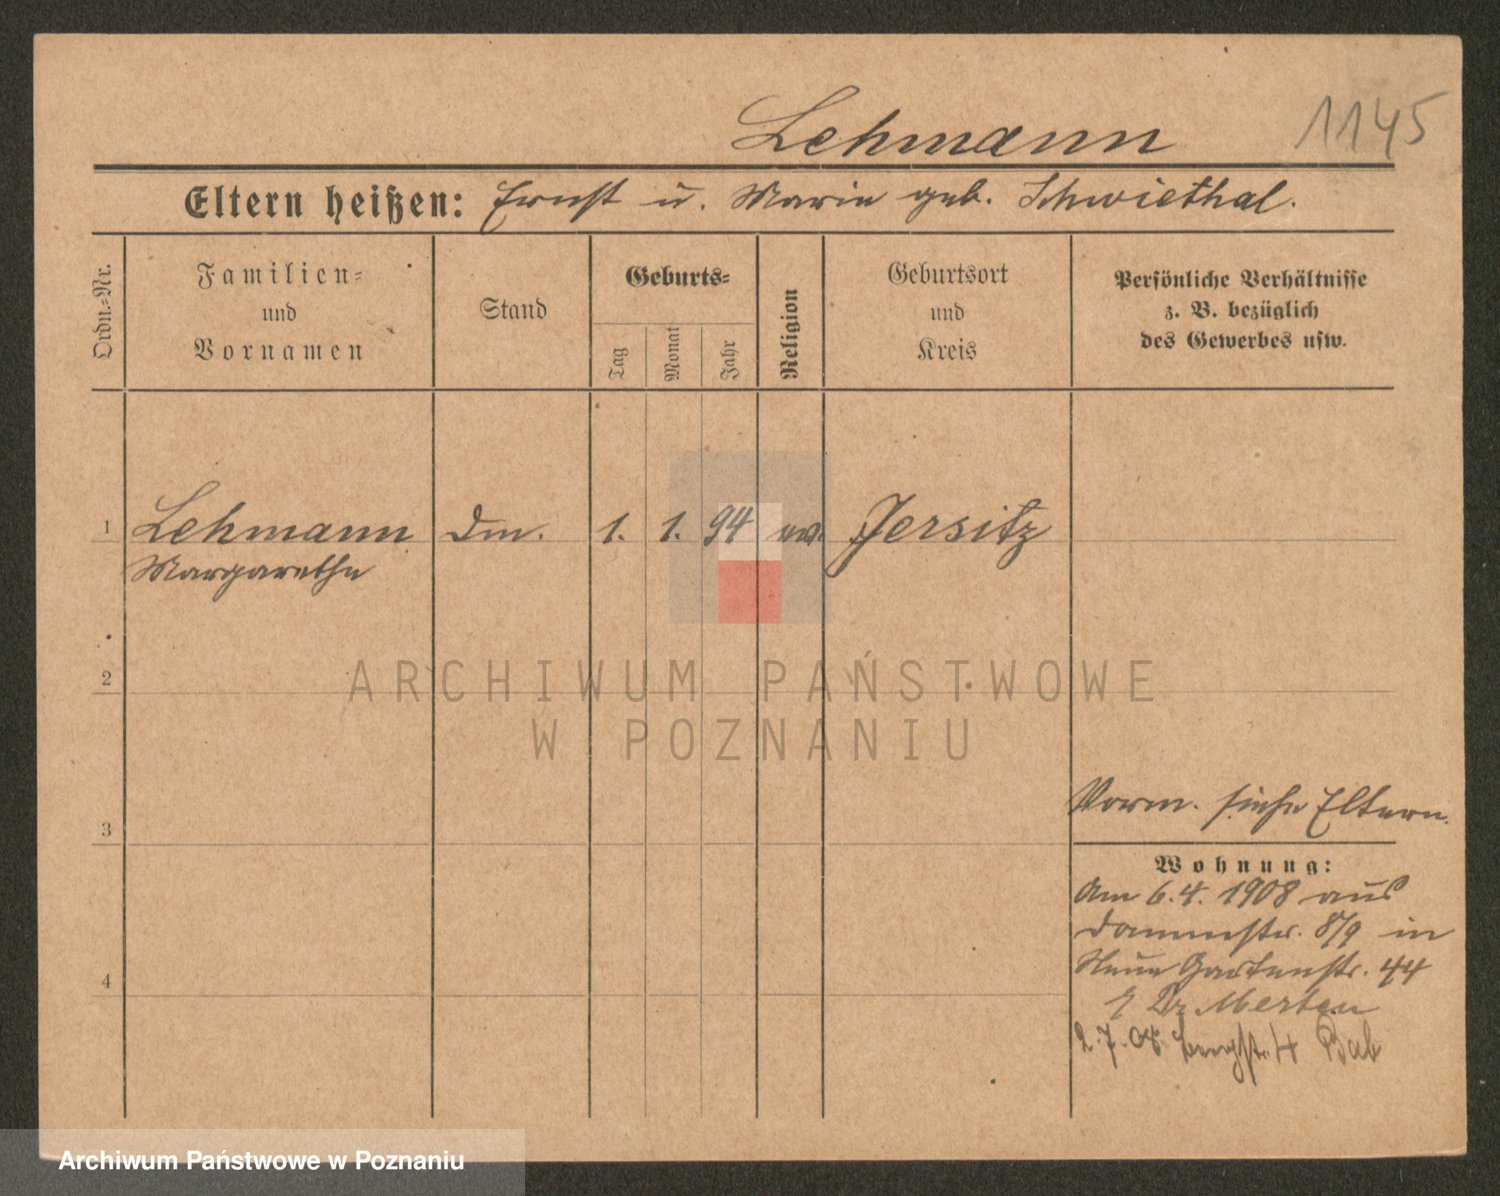 Lehmann
1145
Eltern heißen: Ernst u. Marie geb. Schwiethal.
Ordn.-Nr.
Familien-
und
Vornamen
Stand
Geburts-
Tag
Monat
Jahr
Religion
Geburtsort
und
Kreis
Persönliche Verhältnisse
z. B. bezüglich
des Gewerbes usw.
1 Lehmann Dm. 1. 1. 94 ev. Jersitz
Margarethe
2
ARCHIWUM PAŃSTWOWE
W POZNANIU
3
Vorm. siehe Eltern.
Wohnung:
Am 6.4. 1908 aus
Dammstr. 8/9 in
Neue Gartenstr. 44
Dr. Merten
4
2.7.08 Bergstr. 4
Archiwum Państwowe w Poznaniu